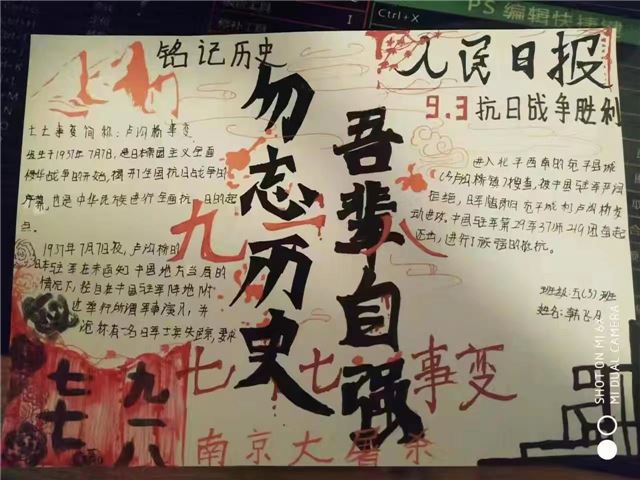 PS 编辑快捷键
Ctrl+X
铭记历史
人民日报
9.3抗日战争胜利
勿志历史
吾辈自强
七七事变简称:卢沟桥事变
发生于1937年7月7日,是日本帝国主义全面
侵华战争的开始,揭开了全国抗日战争的
序幕,也是中华民族进行全面抗日的起
点。
1937年7月7日夜,卢沟桥的
日本驻军在未通知中国地方当局的
情况下,径自在中国驻军阵地附
近举行所谓军事演习,并
诡称有一名日军士兵失踪,要求
进入北平西南的宛平县城
(卢沟桥镇)搜查,被中国驻军严词
拒绝,日军随即向宛平城和卢沟桥发
动进攻。中国驻军第29军37师219团奋起
还击,进行了顽强的抵抗。
班级:五(3)班
姓名:韩飞月
九一八
七七事变
南京大屠杀
七七
九一八
SHOT ON MI 6X
MI DUAL CAMERA